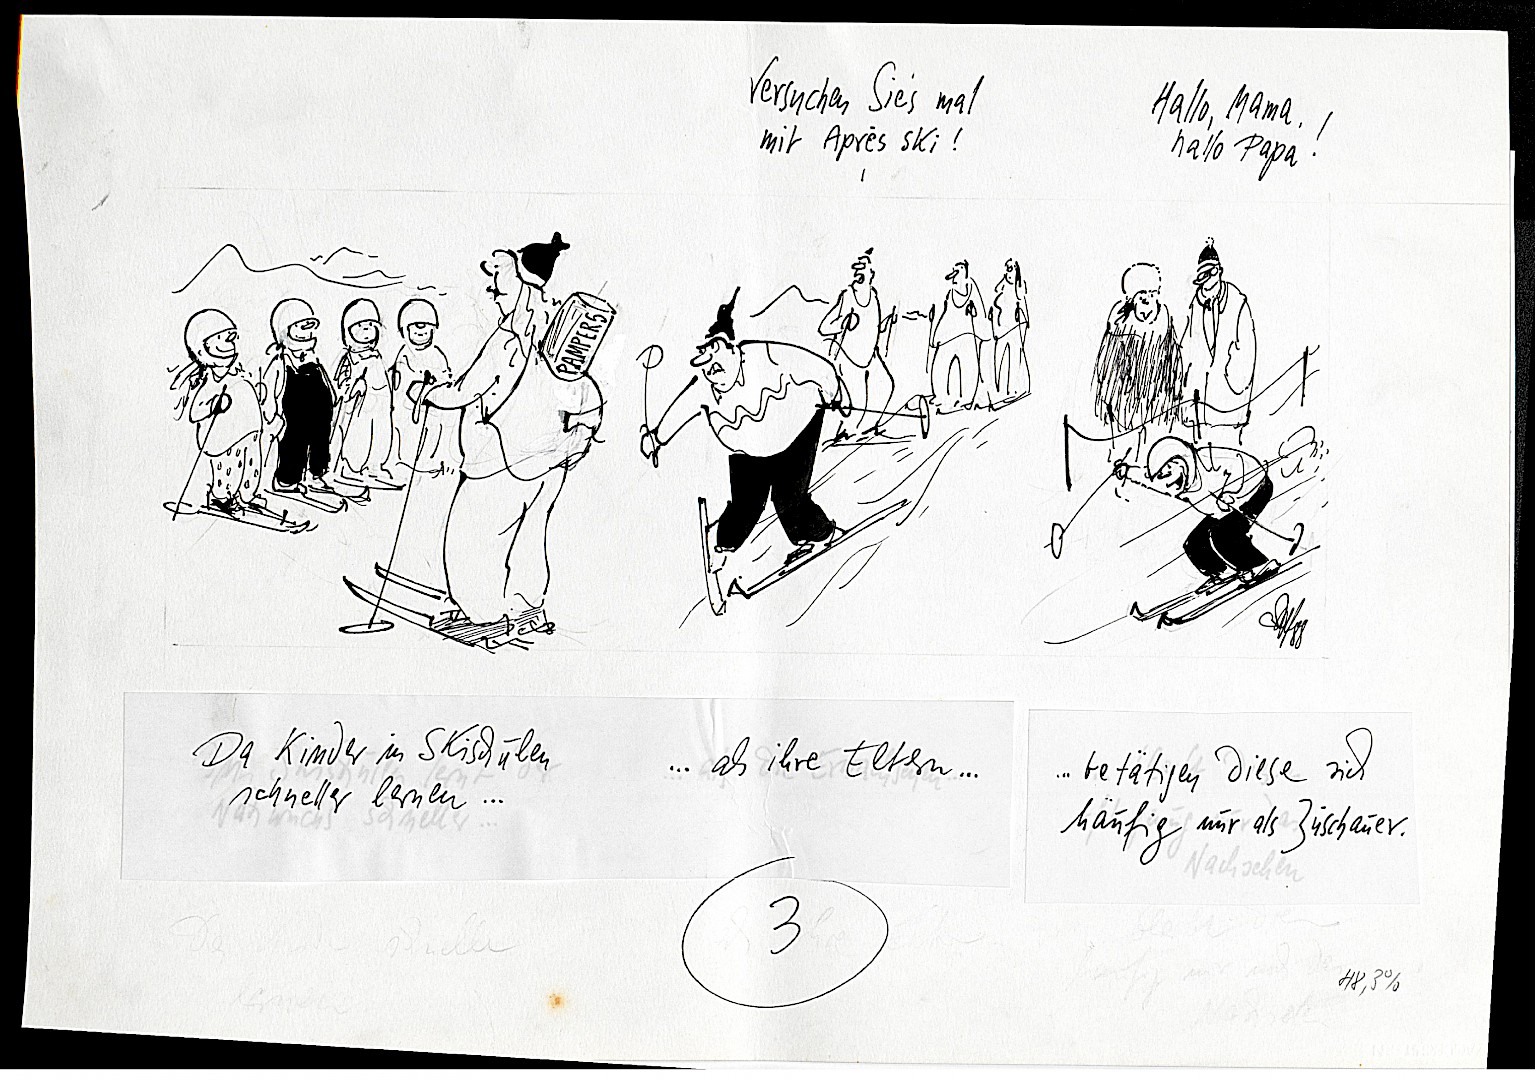 Versuchen Sie's mal
mit Après Ski!
Hallo, Mama,
hallo Papa!
PAMPERS
Da Kinder in Skischulen
schneller lernen ...
... als ihre Eltern ...
... betätigen diese sich
häufig nur als Zuschauer.
Nachsehen
3
48,3%